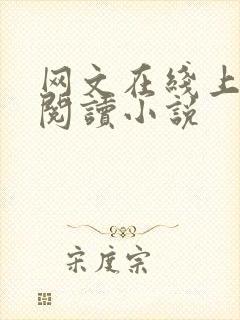 网文在线上
閱讀小说
宋度宗